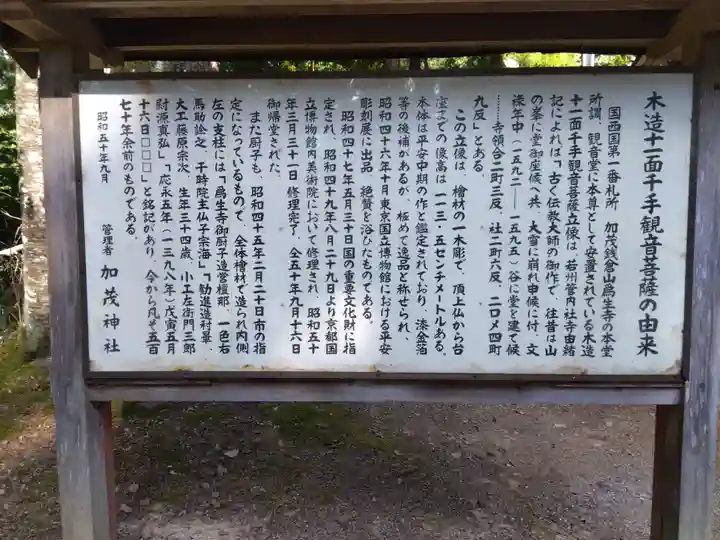 木造十一面千手観音菩薩の由来
国西国第一番札所　加茂銭倉山爲生寺の本堂
所謂、観音堂に本尊として安置されている木造
十一面千手観音菩薩立像は、若州管内社寺由緒
記によれば「古く伝教大師の御作で、往昔は山
の峯に堂御座候へ共、大雪に崩れ申候に付、文
禄年中（一五九二—一五九五）谷に堂を建て候
………寺領合二町三反、社二町六反、二口〆四町
九反」とある。
この立像は、檜材の一木彫で、頂上仏から台
座までの像高は一一三・五センチメートルある。
本体は平安中期の作と鑑定されており、漆金箔
等の後補があるが、極めて逸品と称せられ、
昭和四十六年十月東京国立博物館における平安
彫刻展に出品、絶賛を浴びたものである。
昭和四十七年五月三十日国の重要文化財に指
定され、昭和四十九年八月二十九日より京都国
立博物館内美術院において修理され、昭和五十
年三月三十一日修理完了、仝五十年九月十六日
御帰堂された。
また厨子も、昭和四十五年二月二十日市の指
定になっているもので、全体檜材で造られ内側
左の支柱には「爲生寺御厨子造営檀那、一色右
馬助詮之　于時院主仏子宗海」「勧進造村畢、
大工藤原宗次、生年三十四歳、小工左衛門三郎
尉源真弘」「応永五年（一三九八年）戊寅五月
十六日□□□」と銘記があり、今から凡そ五百
七十年余前のものである。
昭和五十年九月
管理者　加茂神社